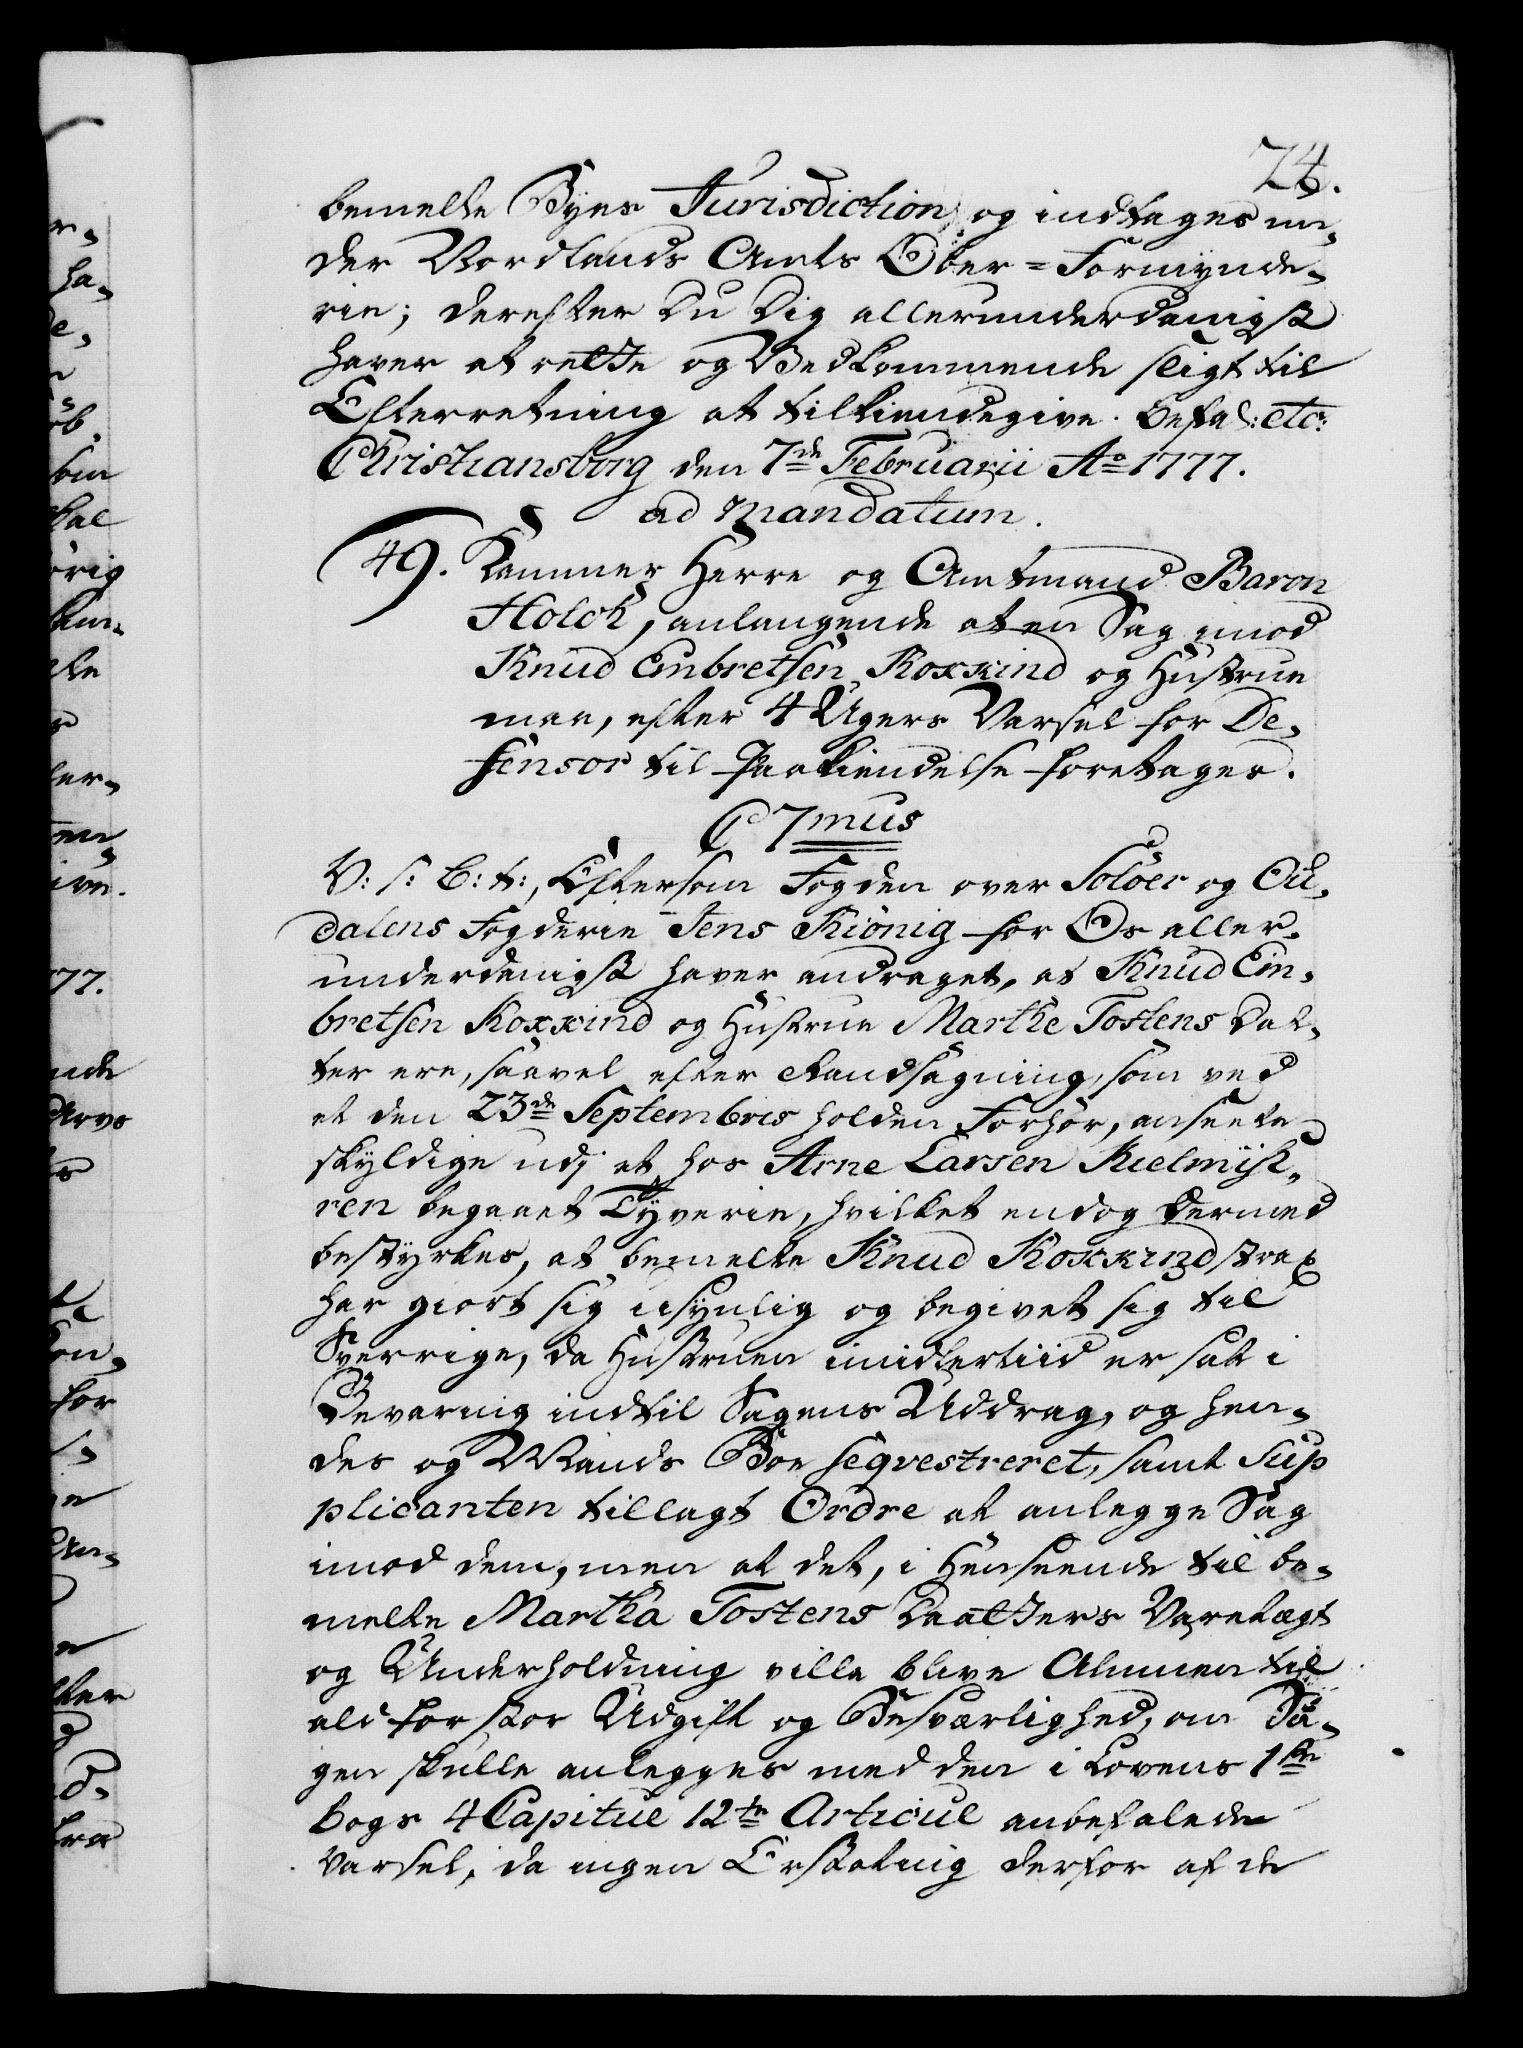 74.
bemelte Byes Jurisdiction, og indtages un-
der Nordlands Amts Ober-Formynde-
rie; derefter Du Dig allerunderdanigst
haver at rette og Vedkommende sligt til
Efterretning at tilkiendegive. Befal: etc:
Christiansborg den 7de Februarii Ao 1777.
ad mandatum.
49. Kammer Herre og Amtmand Baron
Holck, anlangende at en Sag imod
Knud Embretsen Roxkind og Hustrue
maa, efter 4 Ugers Varsel for De-
fensor til Paakiendelse foretages.
C 7mus
V: s: B: t:, Eftersom Fogden over Soløer og Ou-
dalens Fogderie Jens Kiönig for Os aller-
underdanigst haver andraget, at Knud Em-
bretsen Roxkind og Hustrue Marthe Tostens Dat-
ter ere, saavel efter Randsagning, som ved
et den 23de Septembris holden Forhør, anseete
skyldige udj et hos Arne Larsen Kielmyh-
ren begaaet Tyverie, hvilket endog dermed
bestyrkes, at bemelte Knud Roxkind strax
har giort sig usynlig og begivet sig til
Sverrige, da Hustruen imidlertiid er sat i
Bevaring indtil Sagens Uddrag, og hen-
des og Mands Boe seqvestreret, samt Sup
plicanten tillagt Ordre at anlegge Sag
imod dem, men at det, i Henseende til be-
melte Martha Tostens Daatters Varetægt
og Underholdning ville blive Almuen til
alt for stor Udgift og Besværlighed, om Sa-
gen skulle anlegges med den i Lovens 1ste
Bogs 4 Capitul 12te Articul anbefalede
Varsel, da ingen Erstatning derfor af de